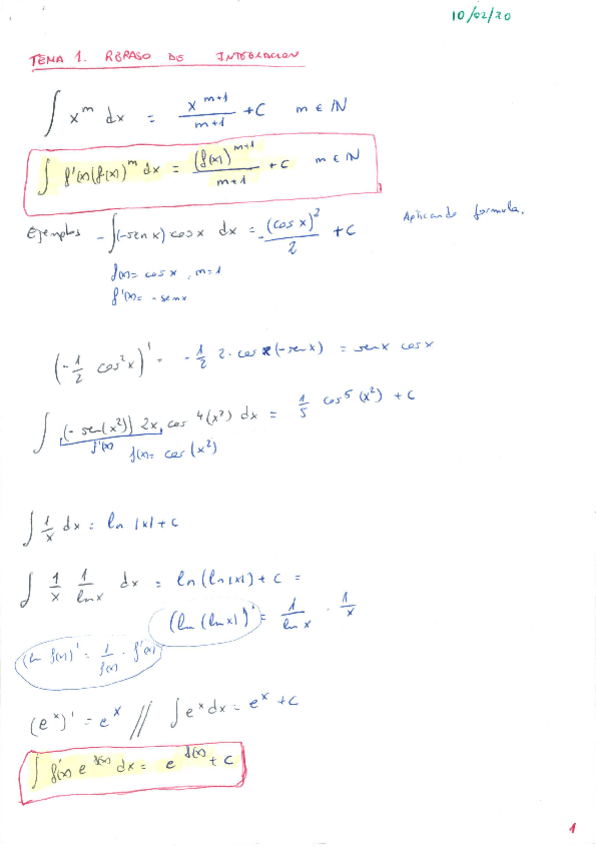 10/02/20
TEMA 1. REPASO DE INTEGRACION
∫ x^m dx = x^(m+1)/(m+1) + C m ∈ ℕ
∫ f'(x)(f(x))^m dx = (f(x))^(m+1)/(m+1) + C m ∈ ℕ
Ejemplos -∫(-sen x) cos x dx = -(cos x)^2/2 + C Aplicando formula.
f(x) = cos x, m=1
f'(x) = -sen x
(-1/2 cos^2 x)' = -1/2 2 · cos x (-sen x) = sen x cos x
∫ (-sen(x^2)) 2x, cos^4(x^2) dx = 1/5 cos^5(x^2) + C
f'(x) f(x) = cos(x^2)
∫ 1/x dx = ln |x| + C
∫ 1/x 1/lnx dx = ln(ln|x|) + C =
(ln(lnx))' = 1/ln x · 1/x
(ln f(x))' = 1/f(x) · f'(x)
(e^x)' = e^x // ∫ e^x dx = e^x + C
∫ f'(x) e^f(x) dx = e^f(x) + C
1